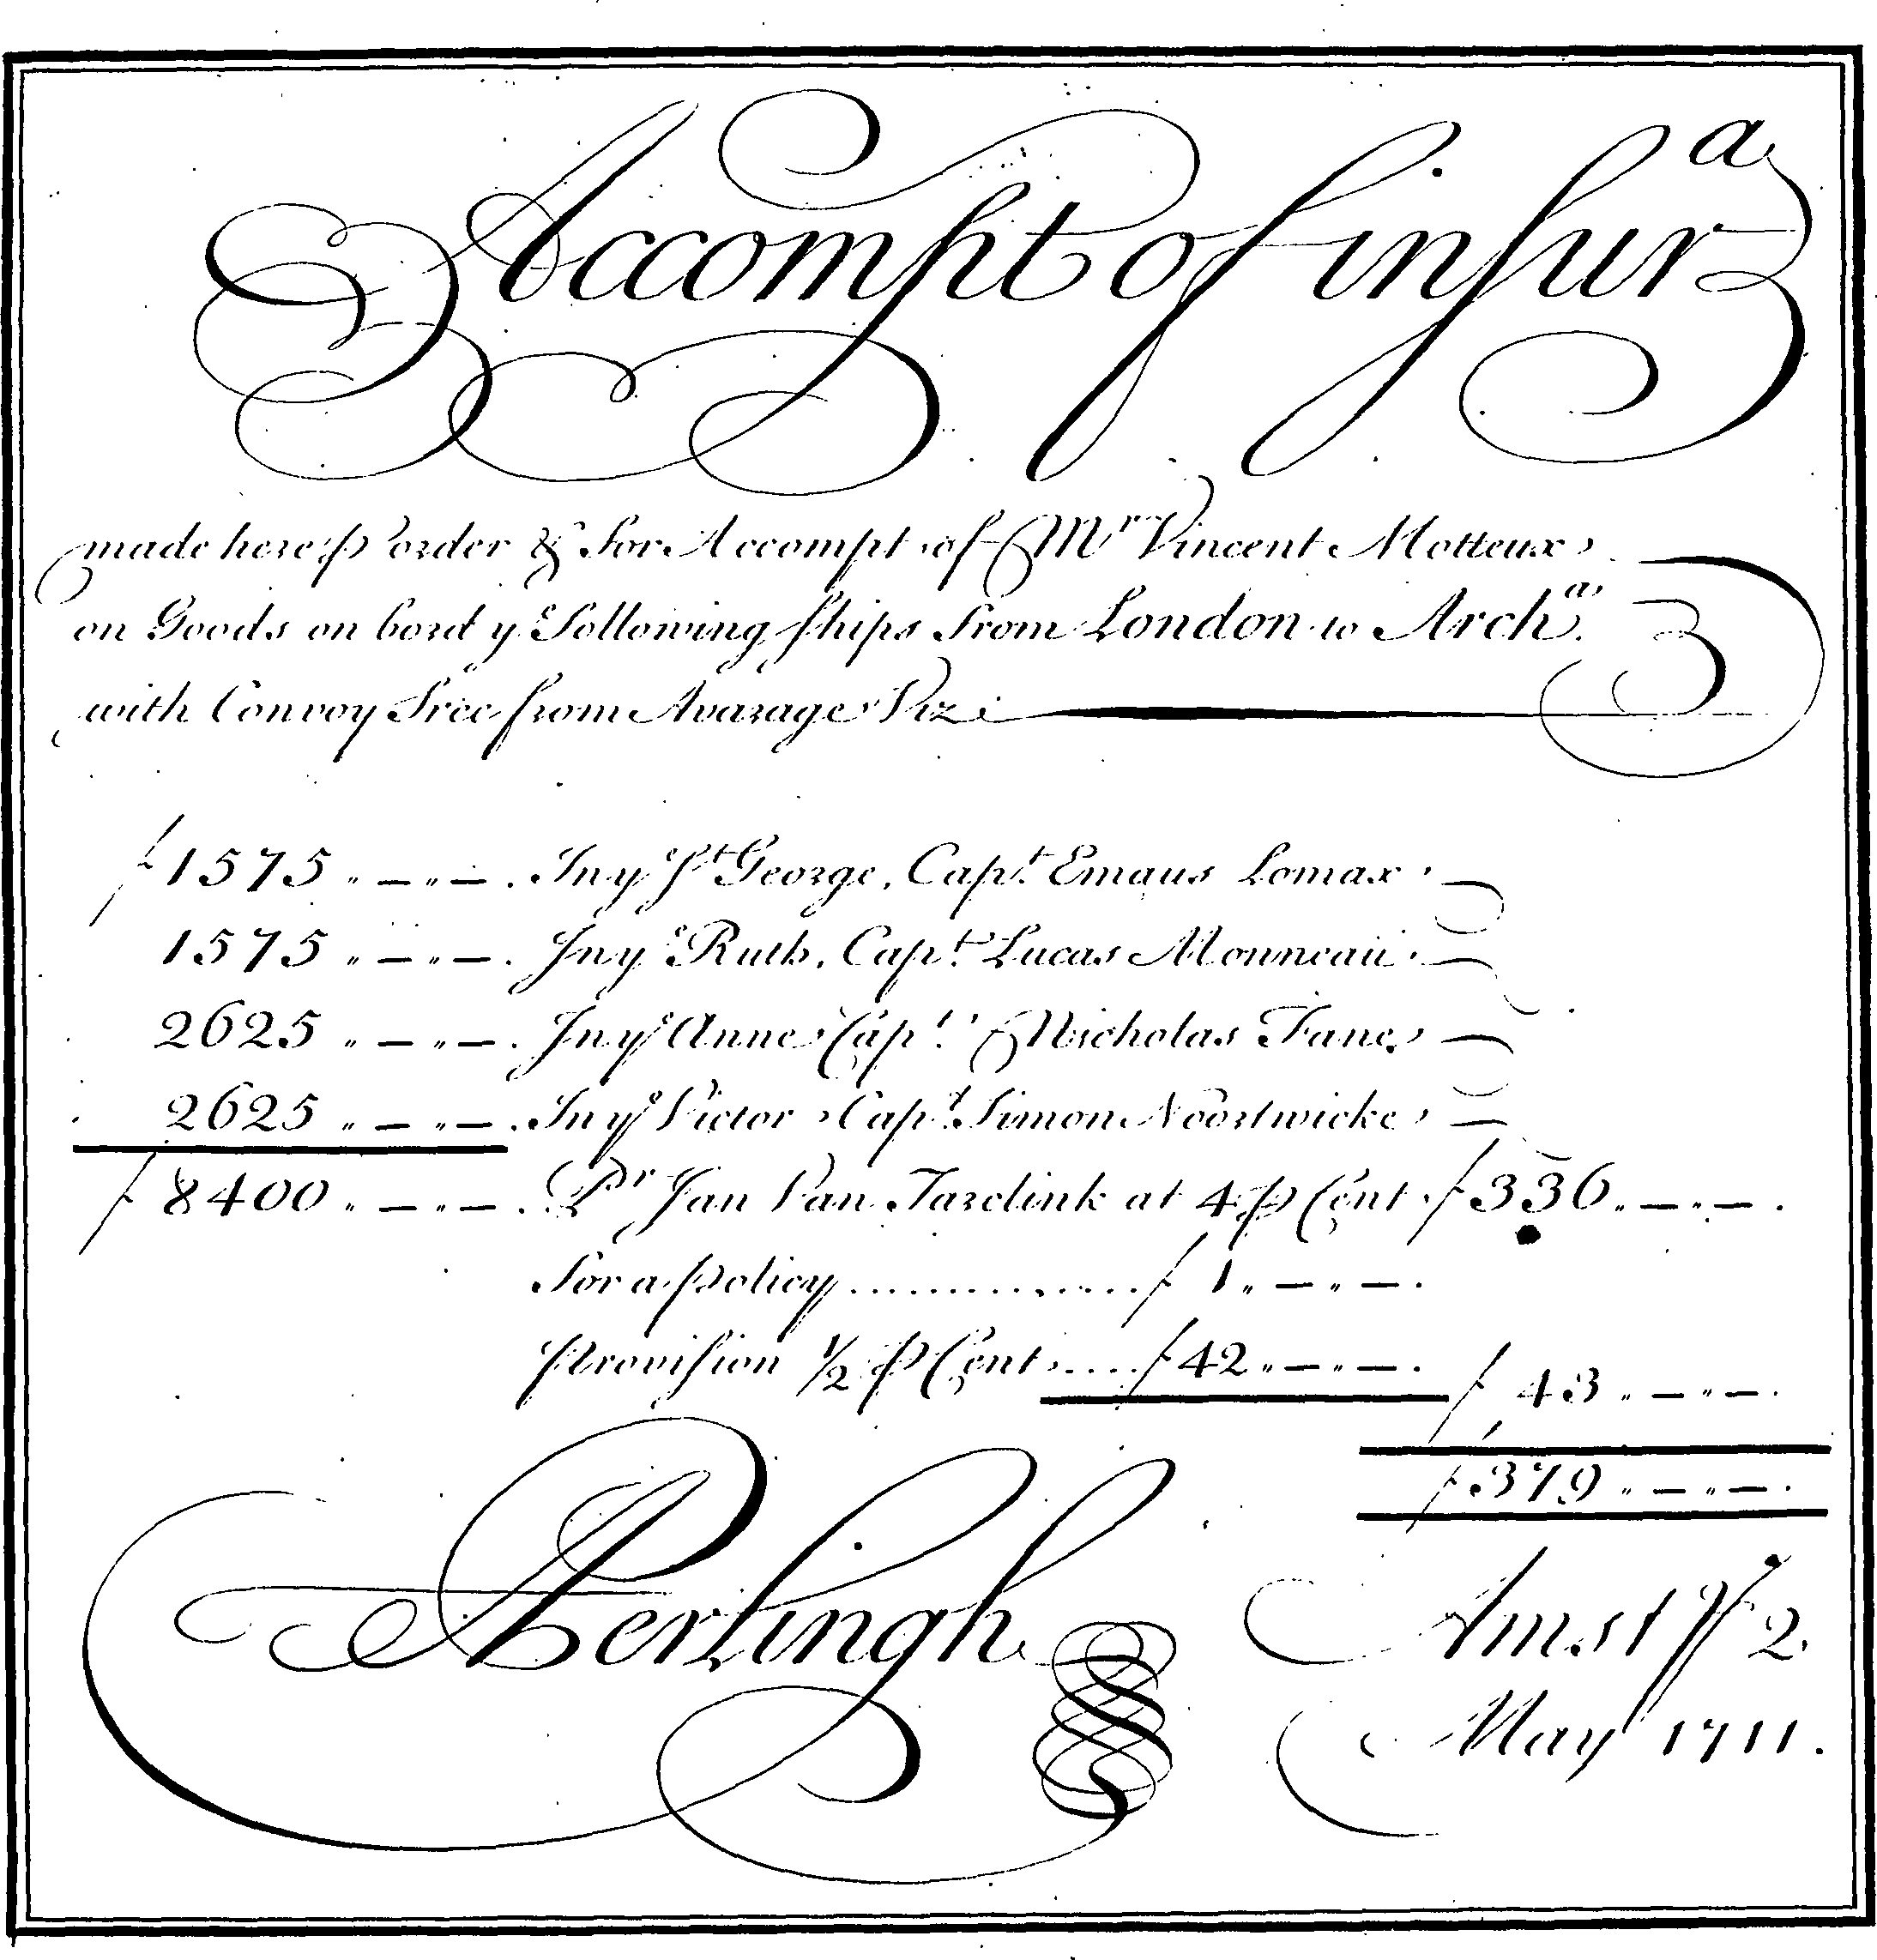 Accompt of insur.ᵃ
made here ꝑ order & for Accompt of Mʳ Vincent Motteux
on Goods on bord yᵉ following ships from London to Archᵃ.
with Convoy free from Avarage Viz
ƒ 1575 „ — „ — . In yᵉ Sᵗ George, Capᵗ. Emaus Lomax
1575 „ — „ — . In yᵉ Ruth, Capᵗ. Lucas Monneau
2625 „ — „ — . In yᵉ Anne Capᵗ. Nicholas Fane
2625 „ — „ — . In yᵉ Victor Capᵗ. Simon Noortwicke
ƒ 8400 „ — „ — . Pʳ Jan Van Tarelink at 4 ꝑ Cent ƒ 336 „ — „ — .
For a policy .............. ƒ 1 „ — „ — .
provision ½ ꝑ Cent .... ƒ 42 „ — „ — . ƒ 43 „ — „ — .
ƒ 379 „ — „ — .
Amst yᵉ 2
Perlingh
May 1711.